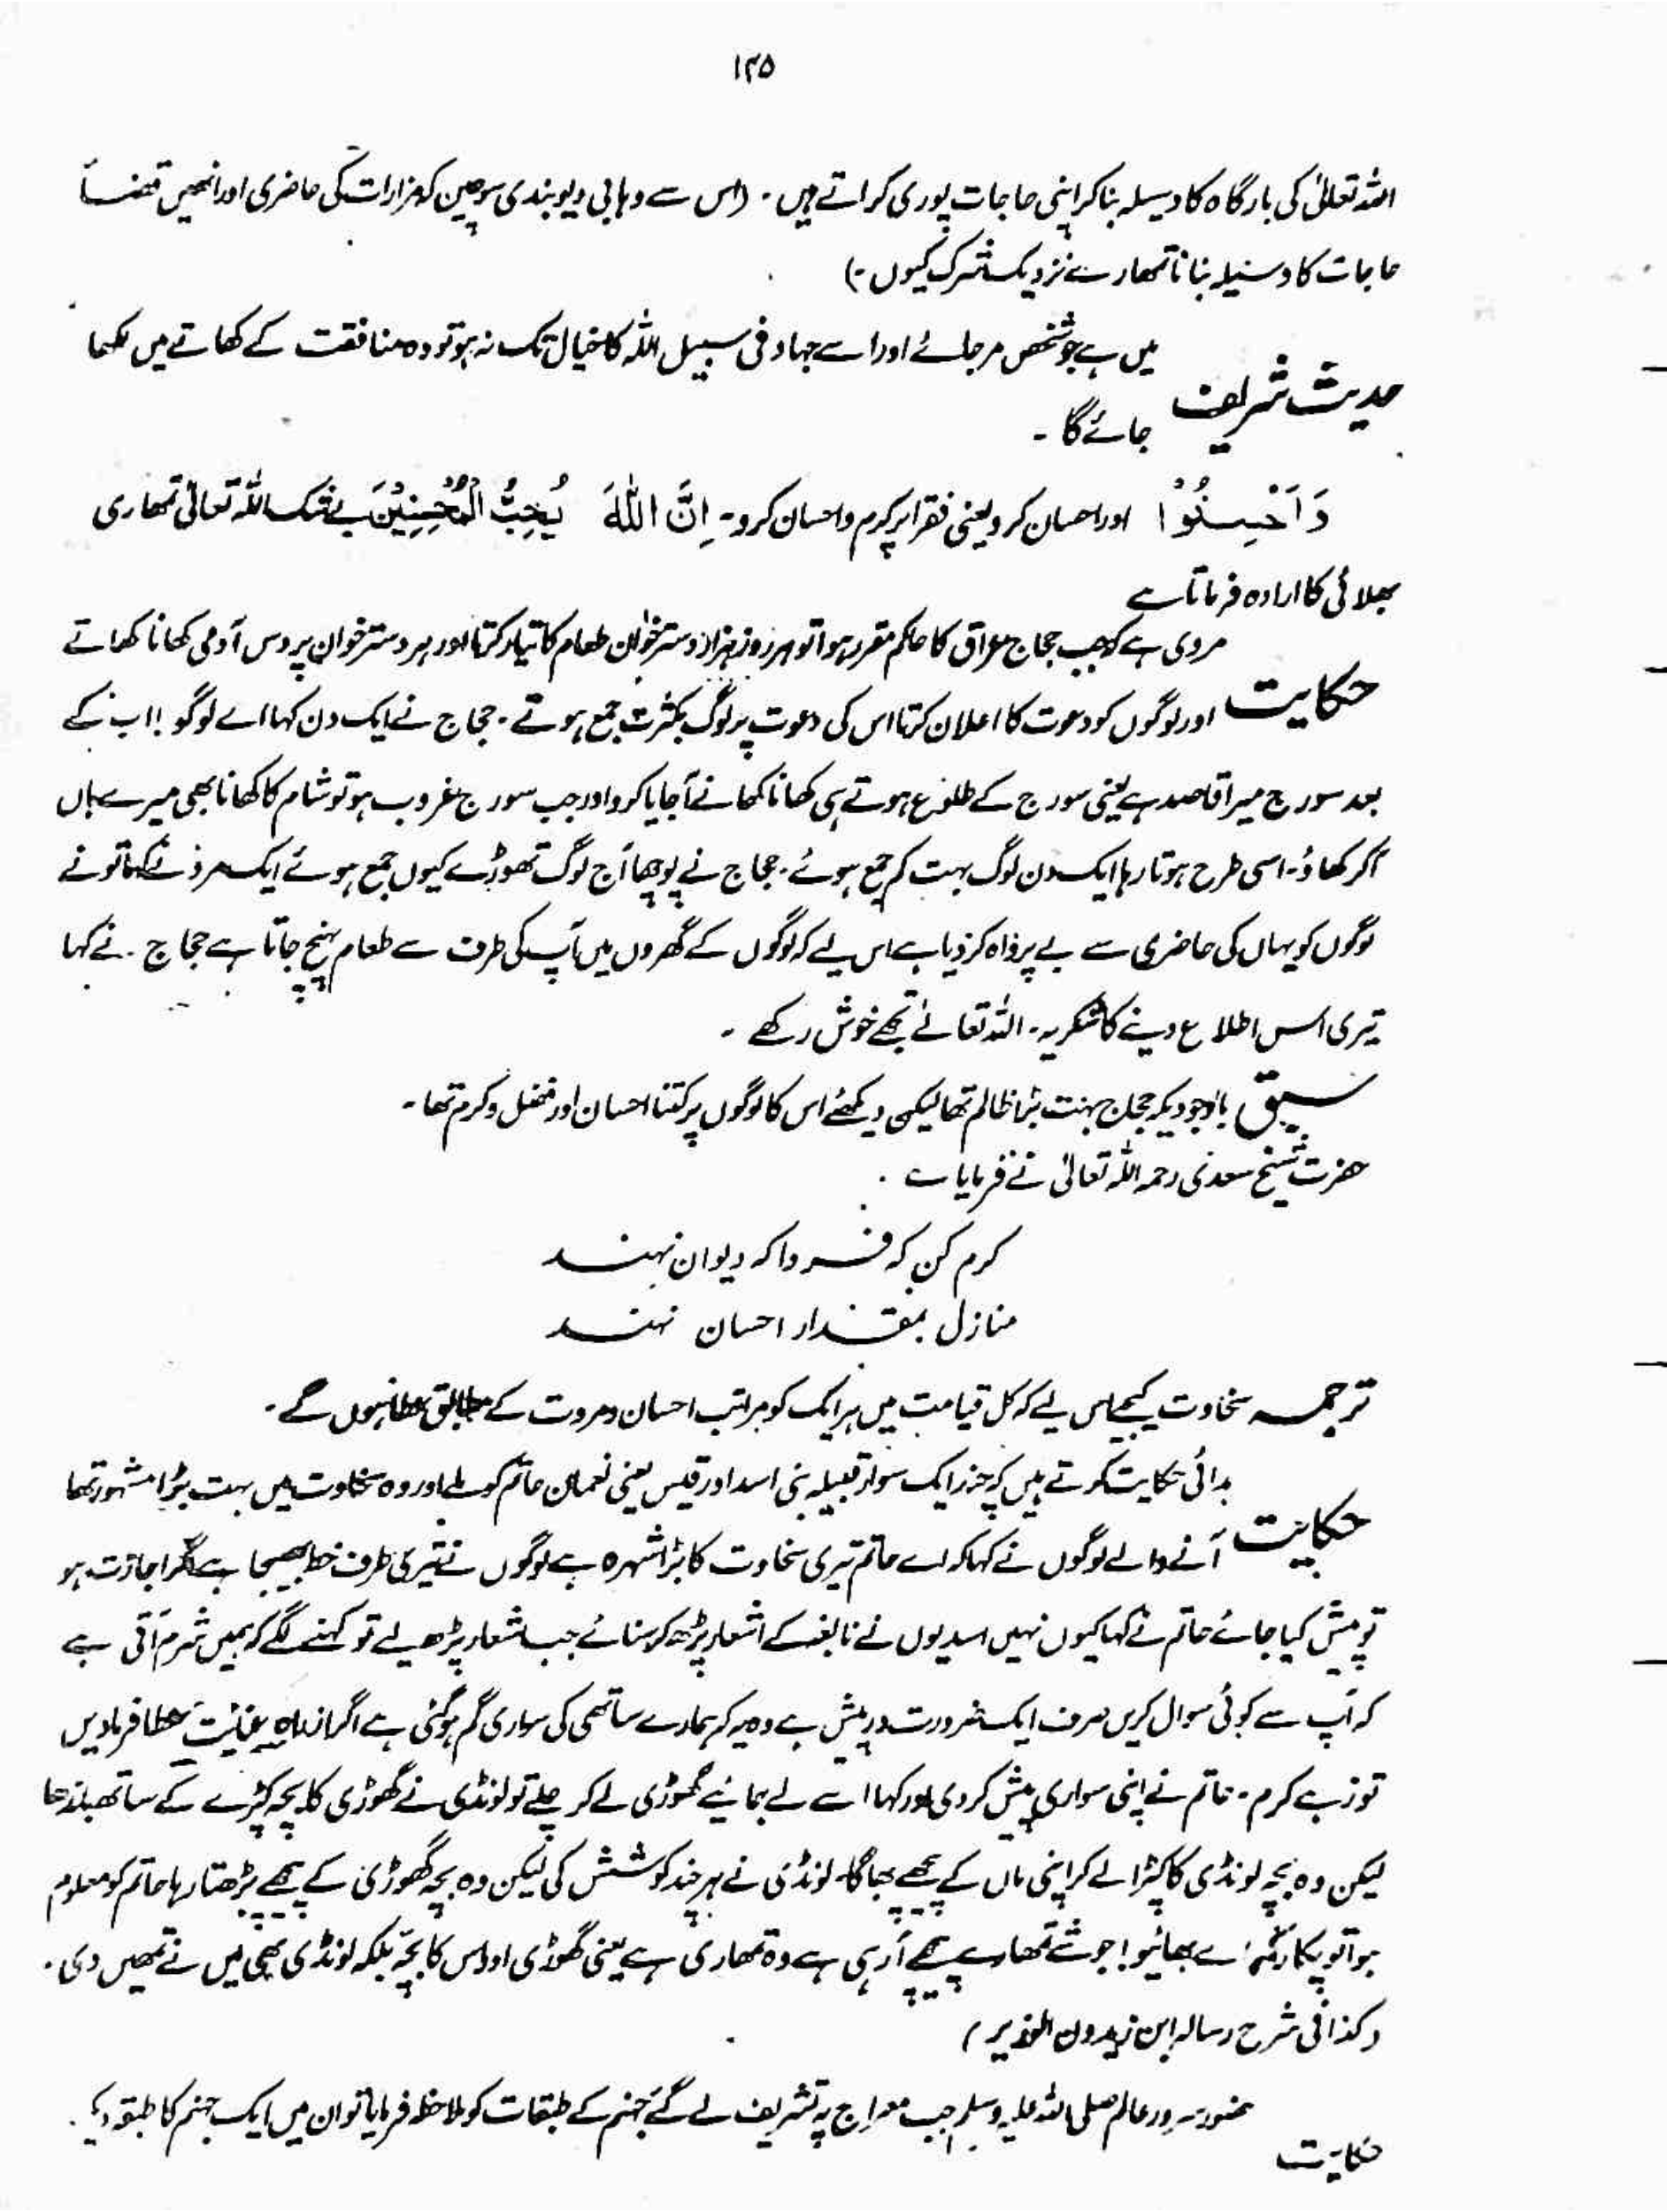 ۱۲۵
اللہ تعالیٰ کی بارگاہ کا وسیلہ بنا کر اپنی حاجات پوری کراتے ہیں ۔ (اس سے وہابی دیوبندی سوچیں کہ مزارات کی حاضری اور انھیں قضائے
حاجات کا وسیلہ بنانا تمھارے نزدیک شرک کیوں ؟)
حدیث شریف میں ہے جو شخص مر جائے اور اسے جہاد فی سبیل اللہ کا خیال تک نہ ہو تو وہ منافقت کے کھاتے میں لکھا
جائے گا ۔
وَاَحْسِنُوْا اور احسان کرو یعنی فقرا پر کرم و احسان کرو ۔ اِنَّ اللّٰهَ يُحِبُّ الْمُحْسِنِيْنَ بے شک اللہ تعالیٰ تمھاری
بھلائی کا ارادہ فرماتا ہے
حکایت مروی ہے کہ جب حجاج عراق کا حاکم مقرر ہوا تو ہر روز ہزار دسترخوان طعام کا تیار کرتا اور ہر دسترخوان پر دس آدمی کھانا کھاتے
اور لوگوں کو دعوت کا اعلان کرتا اس کی دعوت پر لوگ بکثرت جمع ہوتے ۔ حجاج نے ایک دن کہا اے لوگو ! اب کے
بعد سورج میرا قاصد ہے یعنی سورج کے طلوع ہوتے ہی کھانا کھانے آجایا کرو اور جب سورج غروب ہو تو شام کا کھانا بھی میرے ہاں
آکر کھاؤ ۔ اسی طرح ہوتا رہا ایک دن لوگ بہت کم جمع ہوئے ۔ حجاج نے پوچھا آج لوگ تھوڑے کیوں جمع ہوئے ایک مرد نے کہا تو نے
لوگوں کو یہاں کی حاضری سے بے پرواہ کر دیا ہے اس لیے کہ لوگوں کے گھروں میں آپ کی طرف سے طعام پہنچ جاتا ہے حجاج نے کہا
تیری اس اطلاع دینے کا شکریہ ۔ اللہ تعالےٰ تجھے خوش رکھے ۔
سبق باوجودیکہ حجاج بہت بڑا ظالم تھا لیکن دیکھئے اس کا لوگوں پر کتنا احسان اور فضل و کرم تھا ۔
حضرت شیخ سعدی رحمہ اللہ تعالیٰ نے فرمایا ؎
کرم کن کہ فردا کہ دیوان نہند
منازل بمقدار احسان نہند
ترجمہ سخاوت کیجئے اس لیے کہ کل قیامت میں ہر ایک کو مراتب احسان و مروت کے مطابق عطا ہوں گے ۔
حکایت حکایت کرتے ہیں کہ چند ایک سوار قبیلہ بنی اسد اور قیس یعنی نعمان حاتم کو ملے اور وہ سخاوت میں بہت بڑا مشہور تھا
آنے والے لوگوں نے کہا کہ اے حاتم تیری سخاوت کا بڑا شہرہ ہے لوگوں نے تیری طرف خط بھیجا ہے اگر اجازت ہو
تو پیش کیا جائے حاتم نے کہا کیوں نہیں اسدیوں نے نابغہ کے اشعار پڑھ کر سنائے جب اشعار پڑھ لیے تو کہنے لگے کہ ہمیں شرم آتی ہے
کہ آپ سے کوئی سوال کریں صرف ایک ضرورت درپیش ہے وہ یہ کہ ہمارے ساتھی کی سواری گم ہوگئی ہے اگر از راہ عنایت عطا فرمادیں
تو زہے کرم ۔ حاتم نے اپنی سواری پیش کردی اور کہا اسے لے جائیے گھوڑی لے کر چلے تو لونڈی نے گھوڑی کا بچہ کپڑے کے ساتھ باندھا
لیکن وہ بچہ لونڈی کا کپڑا لے کر اپنی ماں کے پیچھے بھاگا ۔ لونڈی نے ہر چند کوشش کی لیکن وہ بچہ گھوڑی کے پیچھے بڑھتا رہا حاتم کو معلوم
ہوا تو پکارا اے بھائیو ! جو شے تمھارے پیچھے آرہی ہے وہ تمھاری ہے یعنی گھوڑی اور اس کا بچہ بلکہ لونڈی بھی میں نے تمھیں دی ۔
(کذا فی شرح رسالہ ابن زیدون الوزیر)
حکایت حضور سرور عالم صلی اللہ علیہ وسلم جب معراج پہ تشریف لے گئے جہنم کے طبقات کو ملاحظہ فرمایا تو ان میں ایک جہنم کا طبقہ